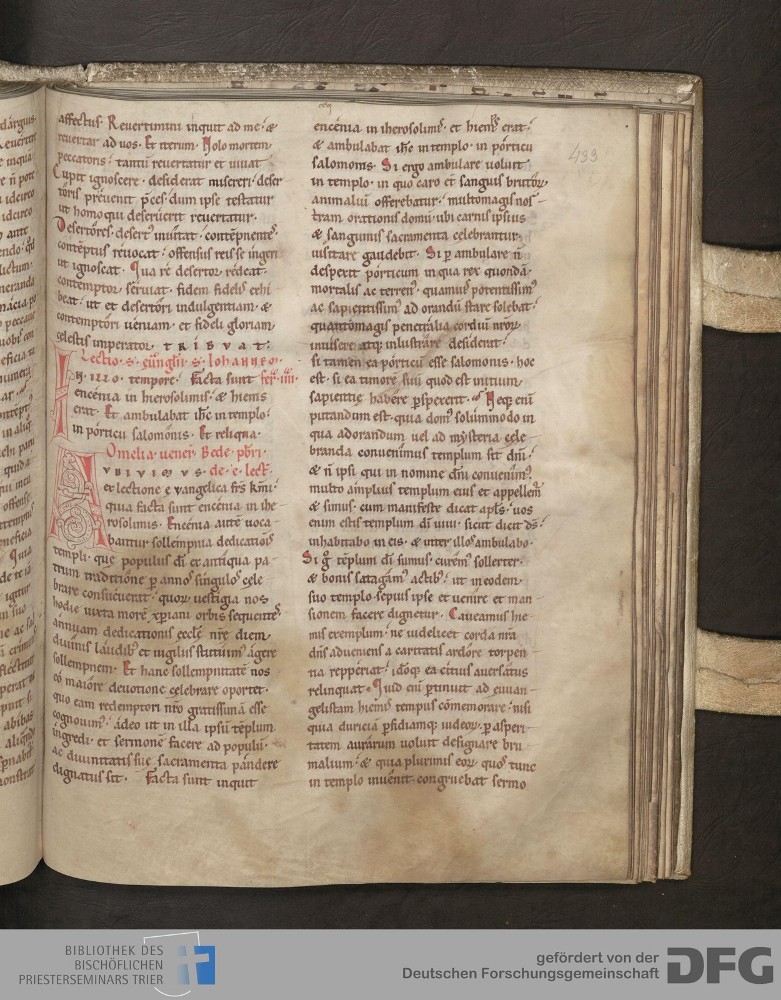 affectus. Reuertimini inquit ad me. &
reuertar ad uos. Et iterum. Nolo mortem
peccatoris. tantū reuertatur et uiuat
Cupit ignoscere. desiderat misereri. deser
toris preuenit p̄ces. dum ipse testatur
ut homo qui deseruerit reuertatur.
Desertores. deserꝰ inuitat. contēpnentes
contēptus reuocat. offensus reis se ingeri
ut ignoscat. Qua re desertor redeat.
contemptor seruiat. fidem fidelis
beat. ut et desertori indulgentiam. &
contemptori ueniam. et fideli gloriam
celestis imperator. TRIBVAT.
Lectio. s. euḡlii. s. Iohannen.
In illo. tempore. Facta sunt fer. iiii.
encenia in hierosolimis. & hiems
erat. Et ambulabat ihc in templo.
in porticu salomonis. Et reliqua.
Omelia. uener. Bede. pbri.
AVDIVIMVS. de. e. lect̄.
et lectione euangelica frs̄ kmi.
quia facta sunt encenia in ihe
rosolimis. Encenia autē uoca
bantur sollempnia dedicationis
templi. que populus di ex antiqua pa
trum traditione p annos singulos cele
brare consueuerat. quorum uestigia nos
hodie iuxta morē xpiani orbis sequentes
annuam dedicationis eccle nr̄e diem
diuinis laudibꝰ et uigiliis statuimꝰ agere
sollempnem. Et hanc sollempnitatē nos
eo maiore deuotione celebrare oportet.
quo eam redemptori nr̄o gratissimā esse
cognouimꝰ. adeo ut in illa ipsum tēplum
ingredi. et sermonē facere ad populū.
ac diuinitatis sue sacramenta pandere
dignatus sit. Facta sunt inquit
433
encenia in iherosolimis. et hiems erat.
& ambulabat ihc in templo. in porticu
salomonis. Si ergo ambulare uoluit
in templo. in quo caro et sanguis brutorum
animaliū offerebatur. multo magis nos
tram orationis domū. ubi carnis ipsius
& sanguinis sacramenta celebrantur
uisitare gaudebit. Si p ambulare n̄
despexit porticum in qua rex quondā
mortalis ac terrenꝰ. quamuis potentissimꝰ
ac sapientissimꝰ ad orandū stare solebat.
quantomagis penetralia cordiū nr̄orum
inuisere atq; inlustrare desiderat.
si tamen ea porticū esse salomonis. hoc
est. si ea timorē sui quod est initium
sapientie habere p̄spexerit. Neq; enī
putandum est. quia domꝰ solummodo in
qua ad orandum uel ad mysteria cele
branda conuenimus templum sit dn̄i.
& n̄ ipsi qui in nomine dn̄i conuenimꝰ.
multo amplius templum eius et appellem̄
& simus. cum manifeste dicat apls. uos
enim estis templum di uiui. sicut dicit ds̄.
inhabitabo in eis. & inter illos ambulabo.
Si g̊ tēplum di sumus. curemꝰ sollerter.
& bonis satagamꝰ actibꝰ. ut in eodem
suo templo sepius ipse et uenire et man
sionem facere dignetur. Caueamus hie
mis exemplum. ne uidelicet corda nr̄a
dn̄s adueniens a caritatis ardore torpen
tia reppeṙiat. idoq; ea citius auersatus
relinquat. Quid enī ꝑtinuit ad euuan
gelistam hiemis tempus cōmemorare. nisi
quia duriciā pfidiamq; iudeorum. p asperi
tatem aurarum uoluit designare bru
malium. & quia plurimis eorum quos tunc
in templo inuenit. congruebat sermo
BIBLIOTHEK DES
BISCHÖFLICHEN
PRIESTERSEMINARS TRIER
gefördert von der
Deutschen Forschungsgemeinschaft
DFG